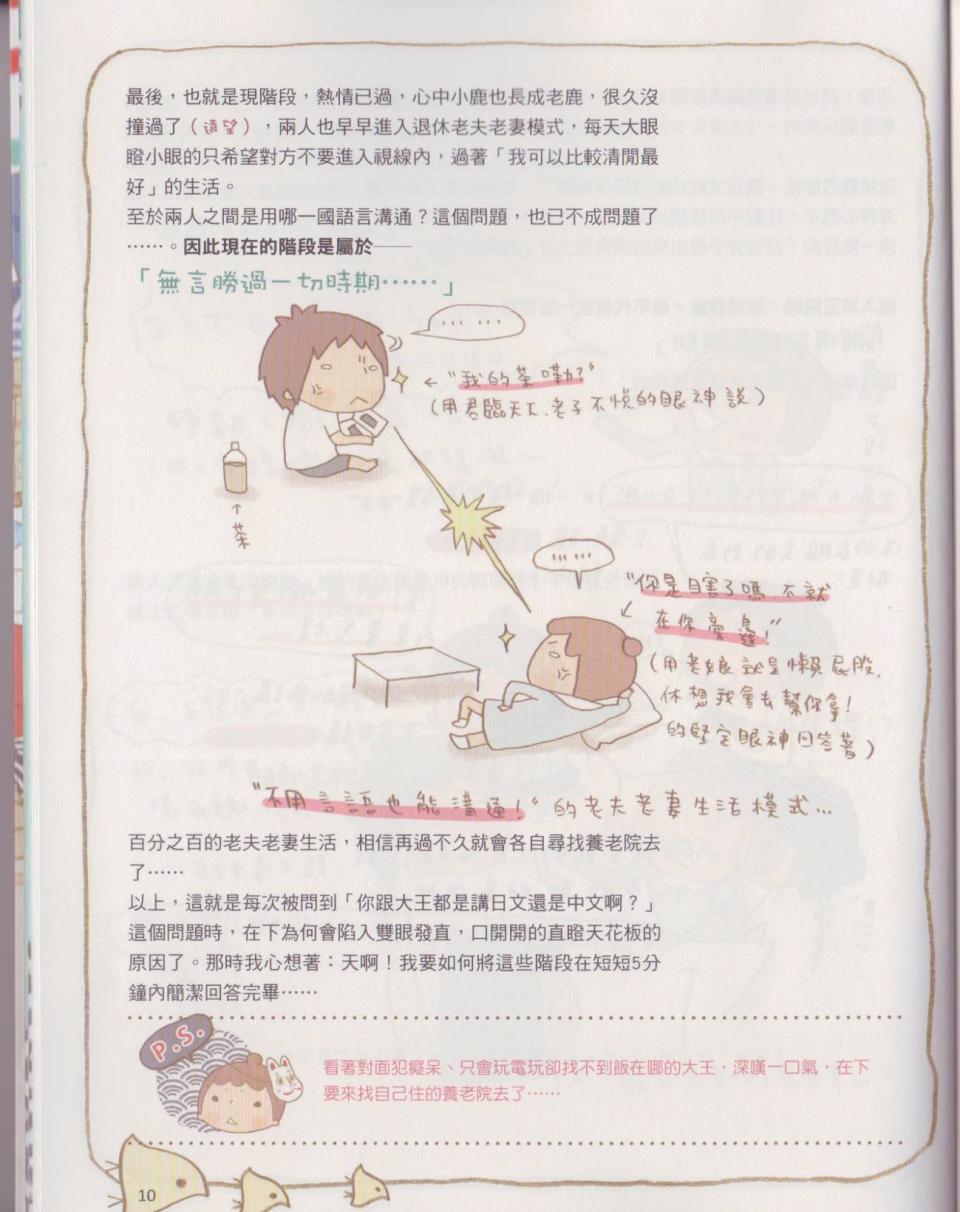 最後，也就是現階段，熱情已過，心中小鹿也長成老鹿，很久沒
撞過了（遠望），兩人也早早進入退休老夫老妻模式，每天大眼
瞪小眼的只希望對方不要進入視線內，過著「我可以比較清閒最
好」的生活。
至於兩人之間是用哪一國語言溝通？這個問題，也已不成問題了
……。因此現在的階段是屬於——
「無言勝過一切時期……」
… …
← “我的茶嘞?”
（用君臨天下、老子不悅的眼神說）
↑
茶
… …
“你是瞎了嗎 不就
在你旁邊!”
（用老娘就是懶屁股，
休想我會去幫你拿!
的堅定眼神回答著）
“不用言語也能溝通!“的老夫老妻生活模式…
百分之百的老夫老妻生活，相信再過不久就會各自尋找養老院去
了……
以上，這就是每次被問到「你跟大王都是講日文還是中文啊？」
這個問題時，在下為何會陷入雙眼發直，口開開的直瞪天花板的
原因了。那時我心想著：天啊！我要如何將這些階段在短短5分
鐘內簡潔回答完畢……
P.S.
看著對面犯癡呆、只會玩電玩卻找不到飯在哪的大王，深嘆一口氣，在下
要來找自己住的養老院去了……
10